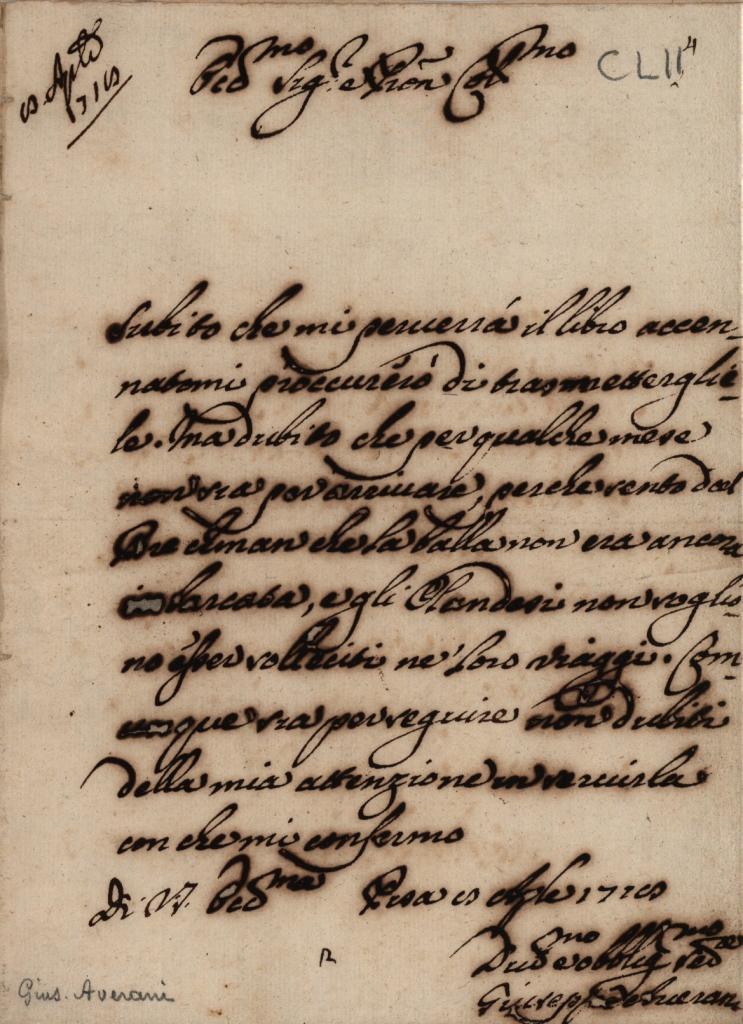 Aple
Sig.r e Pron Col.mo
CLII 4
Subito che mi perverrà il libro accen-
natomi proccurerò di trasmetterglie-
le. Ma dubito che per qualche mese
non sia per arrivare, perche sento dal
che la balla non era ancora
imbarcata, e gli Olandesi non voglio-
no esser solleciti ne' loro viaggi. Com-
unque sia per seguire non dubiti
della mia attenzione in servirla
con che mi confermo
Di V.
Pisa Aple
e obblig. Sed.
Giuseppe Averani
Gius. Averani